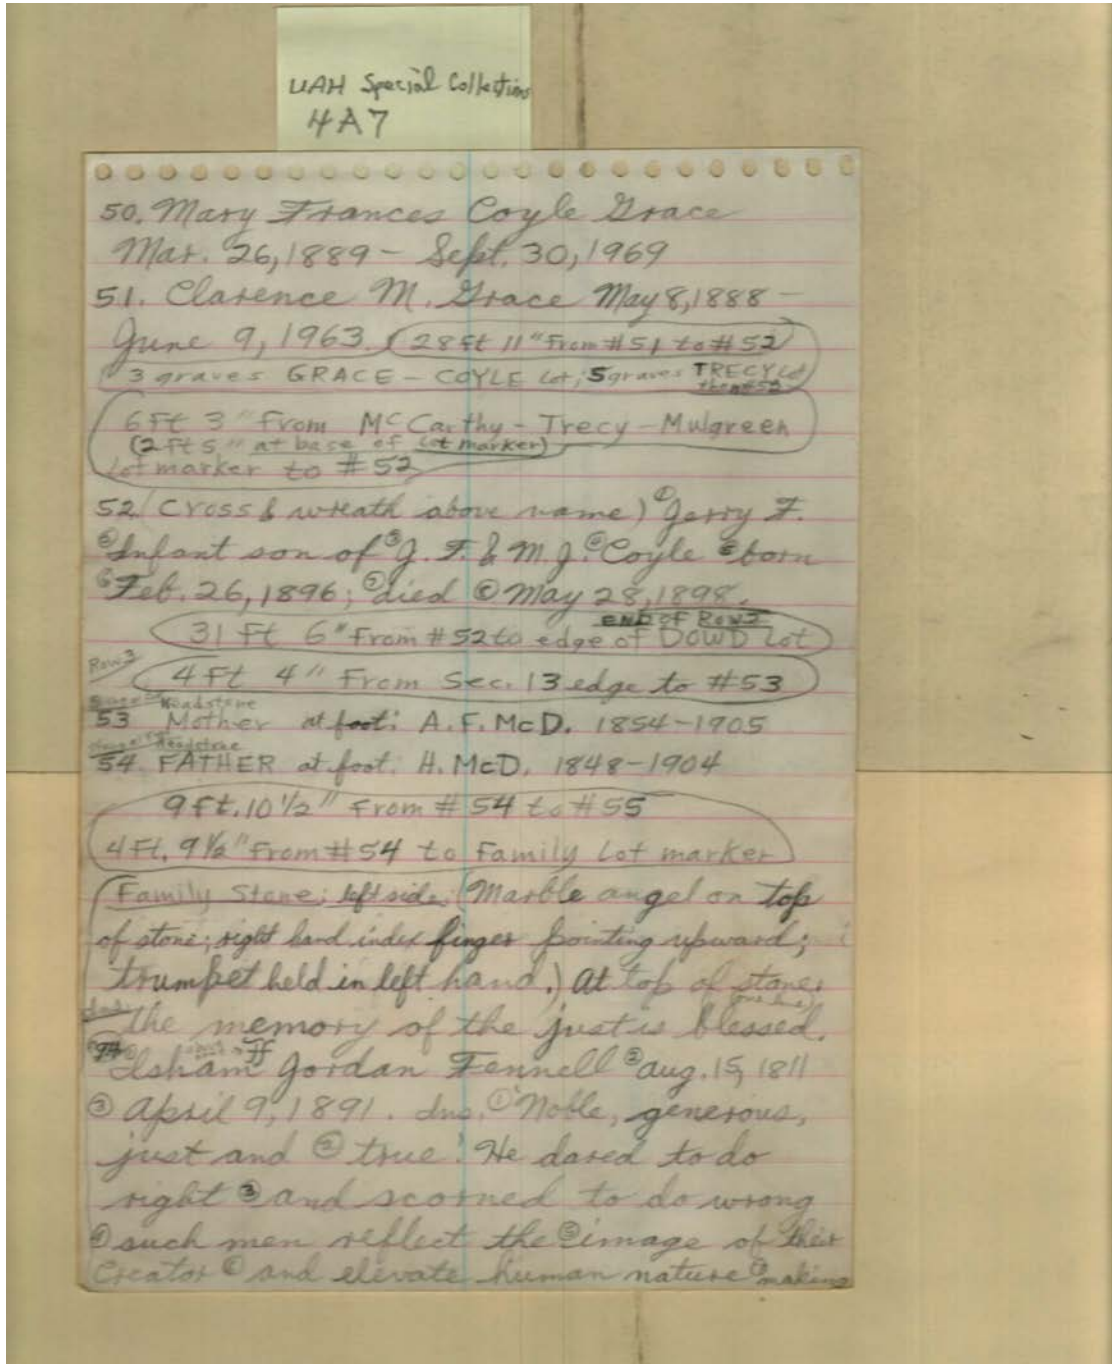 UAH Special Collections
4A7
50. Mary Frances Coyle Grace
Mar. 26, 1889 - Sept. 30, 1969
51. Clarence M. Grace May 8, 1888 -
June 9, 1963. 28 ft 11" From #51 to #52
3 graves GRACE - COYLE Lot; 5 graves TRECY Lot
then #52
6 Ft 3" From McCarthy - Trecy - Mulgreen
(2 ft 5" at base of Lot marker)
Lot marker to #52
52 (Cross & wreath above name) ① Gerry F.
② Infant son of ③ J. F. & M. J. ④ Coyle ⑤ born
⑥ Feb. 26, 1896; ⑦ died ⑧ May 28, 1898.
END OF Row 2
31 Ft 6" From #52 to edge of DOWD Lot
Row 3
4 Ft 4" From Sec. 13 edge to #53
Headstone
53 Mother at foot: A. F. McD. 1854-1905
Headstone
54. FATHER at foot: H. McD. 1848-1904
9 ft. 10 1/2" From #54 to #55
4 Ft. 9 1/2" From #54 to Family Lot marker
Family Stone; left side; (Marble angel on top
of stone; right hand index finger pointing upward;
trumpet held in left hand.) At top of stone;
the memory of the just is blessed.
Isham Jordan Fennell ② Aug. 15, 1811
③ April 9, 1891. ins. ① Noble, generous,
just and ② true! He dared to do
right ③ and scorned to do wrong
④ such men reflect the ⑤ image of their
Creator ⑥ and elevate human nature ⑦ making